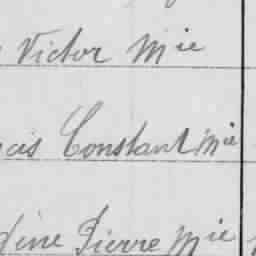 Victor Mie
cis Constant Mie
dine Pierre Mie